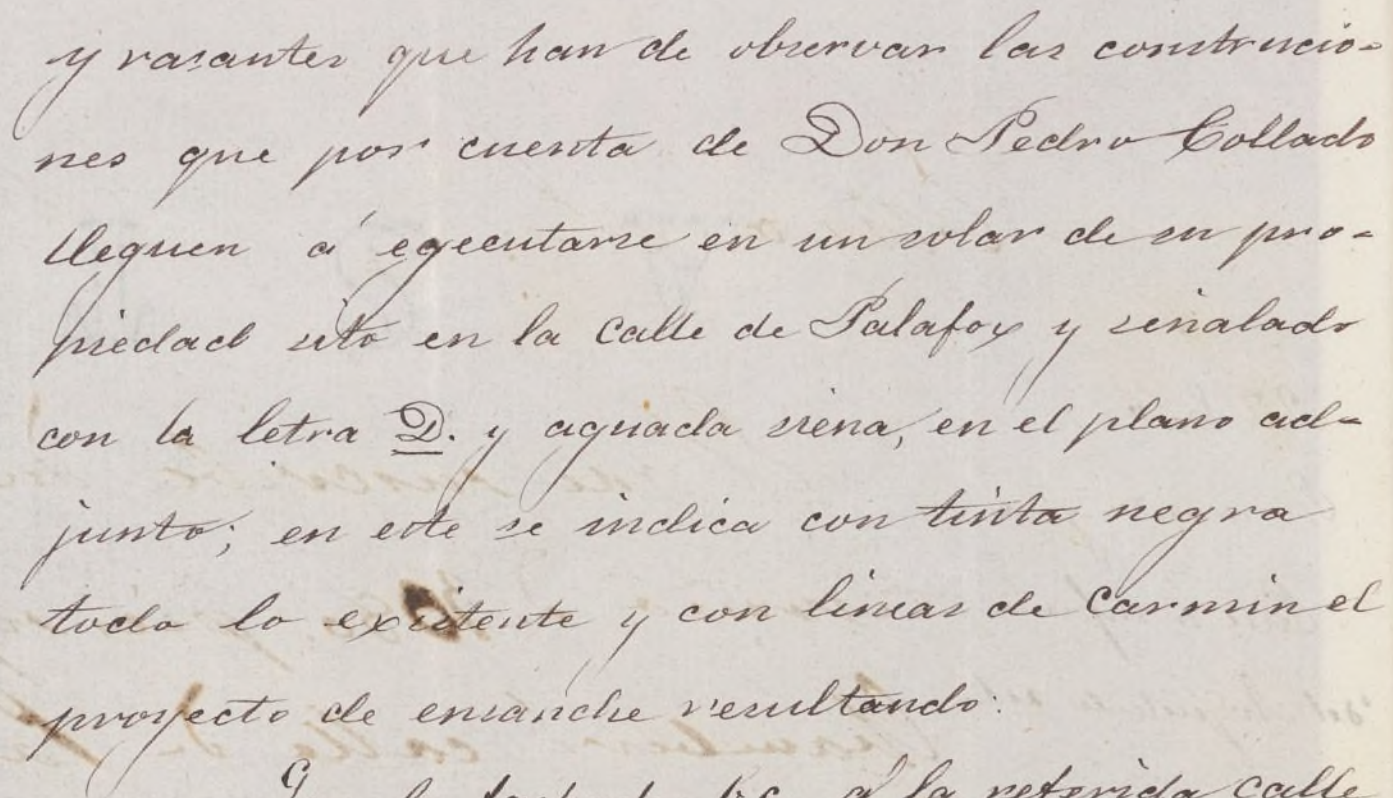 y rasantes que han de observar las construcio-
nes que por cuenta de Don Pedro Collado
lleguen á egecutarse en un solar de su pro-
piedad sito en la calle de Palafox y señalado
con la letra D. y aguada siena, en el plano ad-
junto; en este se indica con tinta negra
todo lo existente y con lineas de carmin el
proyecto de ensanche resultando:
á la referida calle